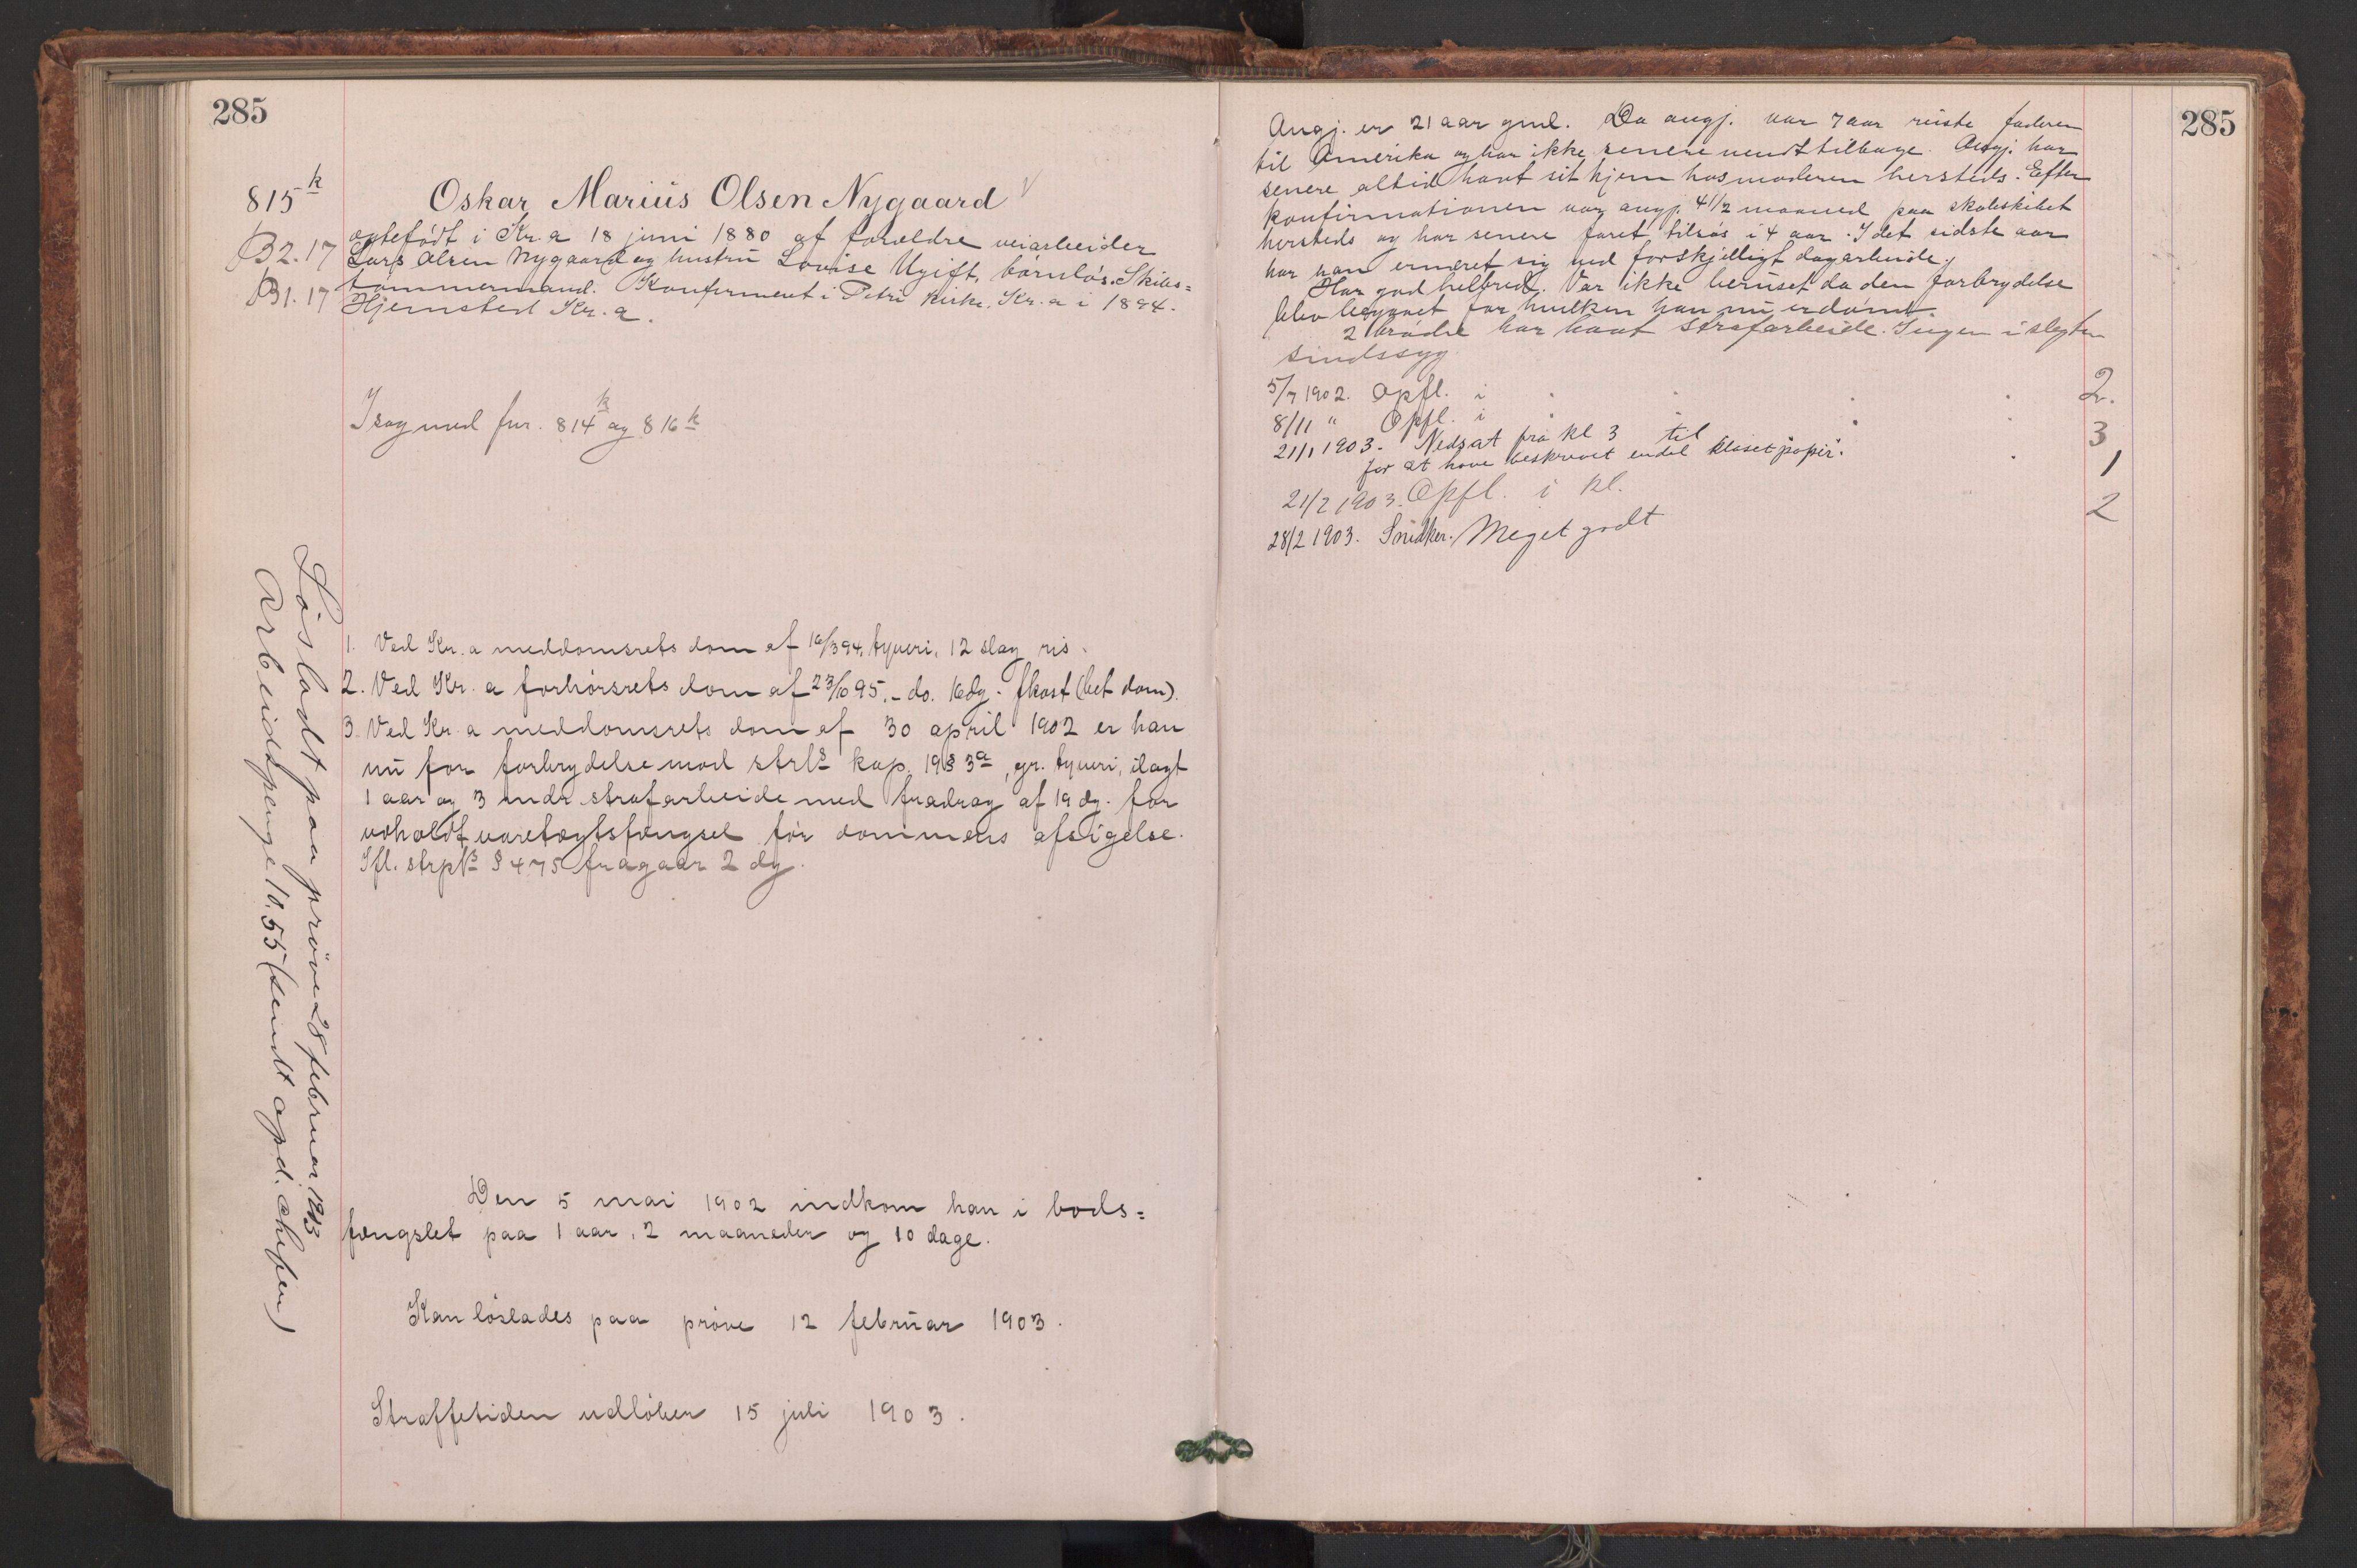 285
815k
Oskar Marius Olsen Nygaard √
B2.17
B1.17
ægtefødt i Kr.a 18 juni 1880 af forældre veiarbeider
Lars Olsen Nygaard og hustru Lovise. Ugift, børnløs. Skibs=
tømmermand. Konfirmeret i Petri kirke, Kr.a i 1894.
Hjemsted Kr.a.
I sag med fnr. 814k og 816k
1. Ved Kr.a meddomsrets dom af 10/3 94, tyveri, 12 slag ris.
2. Ved Kr.a forhørsrets dom af 23/10 95, - do. 16 dg. fkost (bet dom).
3. Ved Kr.a meddomsrets dom af 30 april 1902 er han
nu for forbrydelse mod strls kap. 19 § 3a, gr. tyveri, ilagt
1 aar og 3 mdr strafarbeide med fradrag af 19 dg. for
udholdt varetægtsfængsel før dommens afsigelse.
Ifl. strpls § 475 fragaar 2 dg.
Den 5 mai 1902 indkom han i bods=
fængslet paa 1 aar, 2 maaneder og 10 dage.
Kan løslades paa prøve 12 februar 1903.
Straffetiden udløber 15 juli 1903.
Løsladt paa prøve 28 februar 1903
Arbeidspenge 10.55 (sendt opd. chefen)
285
Angj. er 21 aar gml. Da angj. var 7 aar reiste faderen
til Amerika og har ikke senere vendt tilbage. Angj. har
senere altid havt sit hjem hos moderen hersteds. Efter
konfirmationen var angj. 4 1/2 maaned paa skoleskibet
hersteds og har senere faret tilsøs i 4 aar. I det sidste aar
har han ernæret sig ved forskjelligt dagarbeide.
Har god helbred. Var ikke beruset da den forbrydelse
blev begaaet for hvilken han nu er dømt.
2 brødre har havt strafarbeide. Ingen i slægten
sindssyg
5/7 1902. Opfl. i . . . 2.
8/11 " Opfl. i . . . 3
21/1 1903. Nedsat fra kl 3 til . . 1
for at have beskrevet endel klosetpapir.
21/2 1903. Opfl. i kl. 2
28/2 1903. Snidker. Meget godt